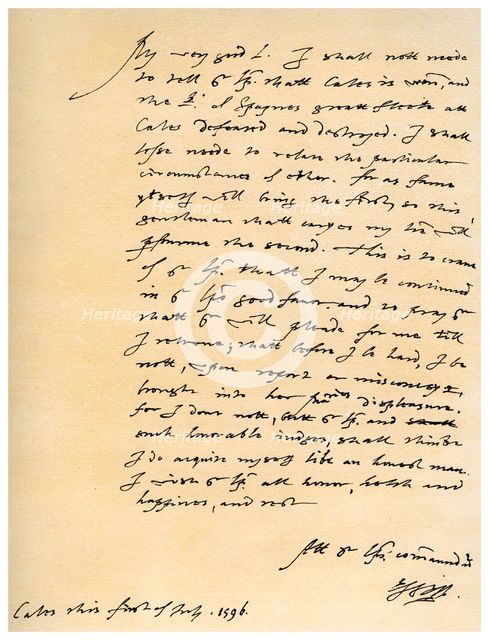 My very good L. I shall nott neede
to tell yr Lp. thatt Cales is wonn, and
the K: of Spaynes great fleete att
Cales defeated and destroyed. I shall
lesse neede to relate the particular
circumstances of ether. for as fame
ytself will bring the first, so this
gentleman thatt caryes my lre will
performe the second. This is to crave
of yr Lp. thatt I may be continued
in yr Lps good favor. and to pray yr
thatt yr will pleade for me till
I retorne; thatt before I be hard, I be
nott, upon report or
brought into her displeasure.
for I dout nott, butt yr Lp. and
such honorable iudges, shall thinke
I do acquite myself like an honest man.
I wish yr Lp. all honor, helth and
happines, and rest
Att yr Lps. commaund
Essex.
Cales this first of July. 1596.
Heritage
Heritage
Heritage
Heritage
Heritage